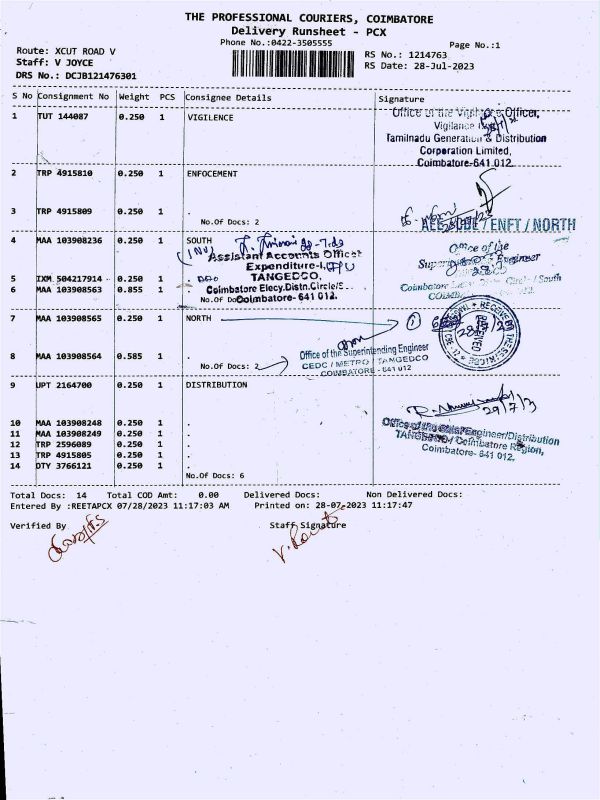 THE PROFESSIONAL COURIERS, COIMBATORE
Delivery Runsheet - PCX
Phone No.:0422-3505555
Page No.:1
Route: XCUT ROAD V
Staff: V JOYCE
DRS No.: DCJB121476301
RS No.: 1214763
RS Date: 28-Jul-2023
S No Consignment No Weight PCS Consignee Details Signature
1 TUT 144087 0.250 1 VIGILENCE
Office of the Vigilance Officer,
Vigilance
Tamilnadu Generation & Distribution
Corporation Limited,
Coimbatore-641 012.
2 TRP 4915810 0.250 1 ENFOCEMENT
3 TRP 4915809 0.250 1 .
No.Of Docs: 2
/ ENFT / NORTH
4 MAA 103908236 0.250 1 SOUTH
Assistant Accounts Officer
Expenditure-I,
TANGEDCO.
5 IXM 504217914 0.250 1
Coimbatore Elecy.Distn.Circle/S
6 MAA 103908563 0.855 1
No.Of Do Coimbatore- 641 012.
Office of the
Superintending Engineer
Coimbatore Circle / South
7 MAA 103908565 0.250 1 NORTH
1
RECEIVED
8 MAA 103908564 0.585 1 .
No.Of Docs: 2
Office of the Superintending Engineer
CEDC / METRO / TANGEDCO
COIMBATORE - 641 012
9 UPT 2164700 0.250 1 DISTRIBUTION
29/7/23
Office of the Chief Engineer/Distribution
TANGEDCO/ Coimbatore Region,
Coimbatore- 641 012.
10 MAA 103908248 0.250 1 .
11 MAA 103908249 0.250 1 .
12 TRP 2596089 0.250 1 .
13 TRP 4915805 0.250 1 .
14 DTY 3766121 0.250 1 .
No.Of Docs: 6
Total Docs: 14 Total COD Amt: 0.00 Delivered Docs: Non Delivered Docs:
Entered By :REETAPCX 07/28/2023 11:17:03 AM Printed on: 28-07-2023 11:17:47
Verified By Staff Signature